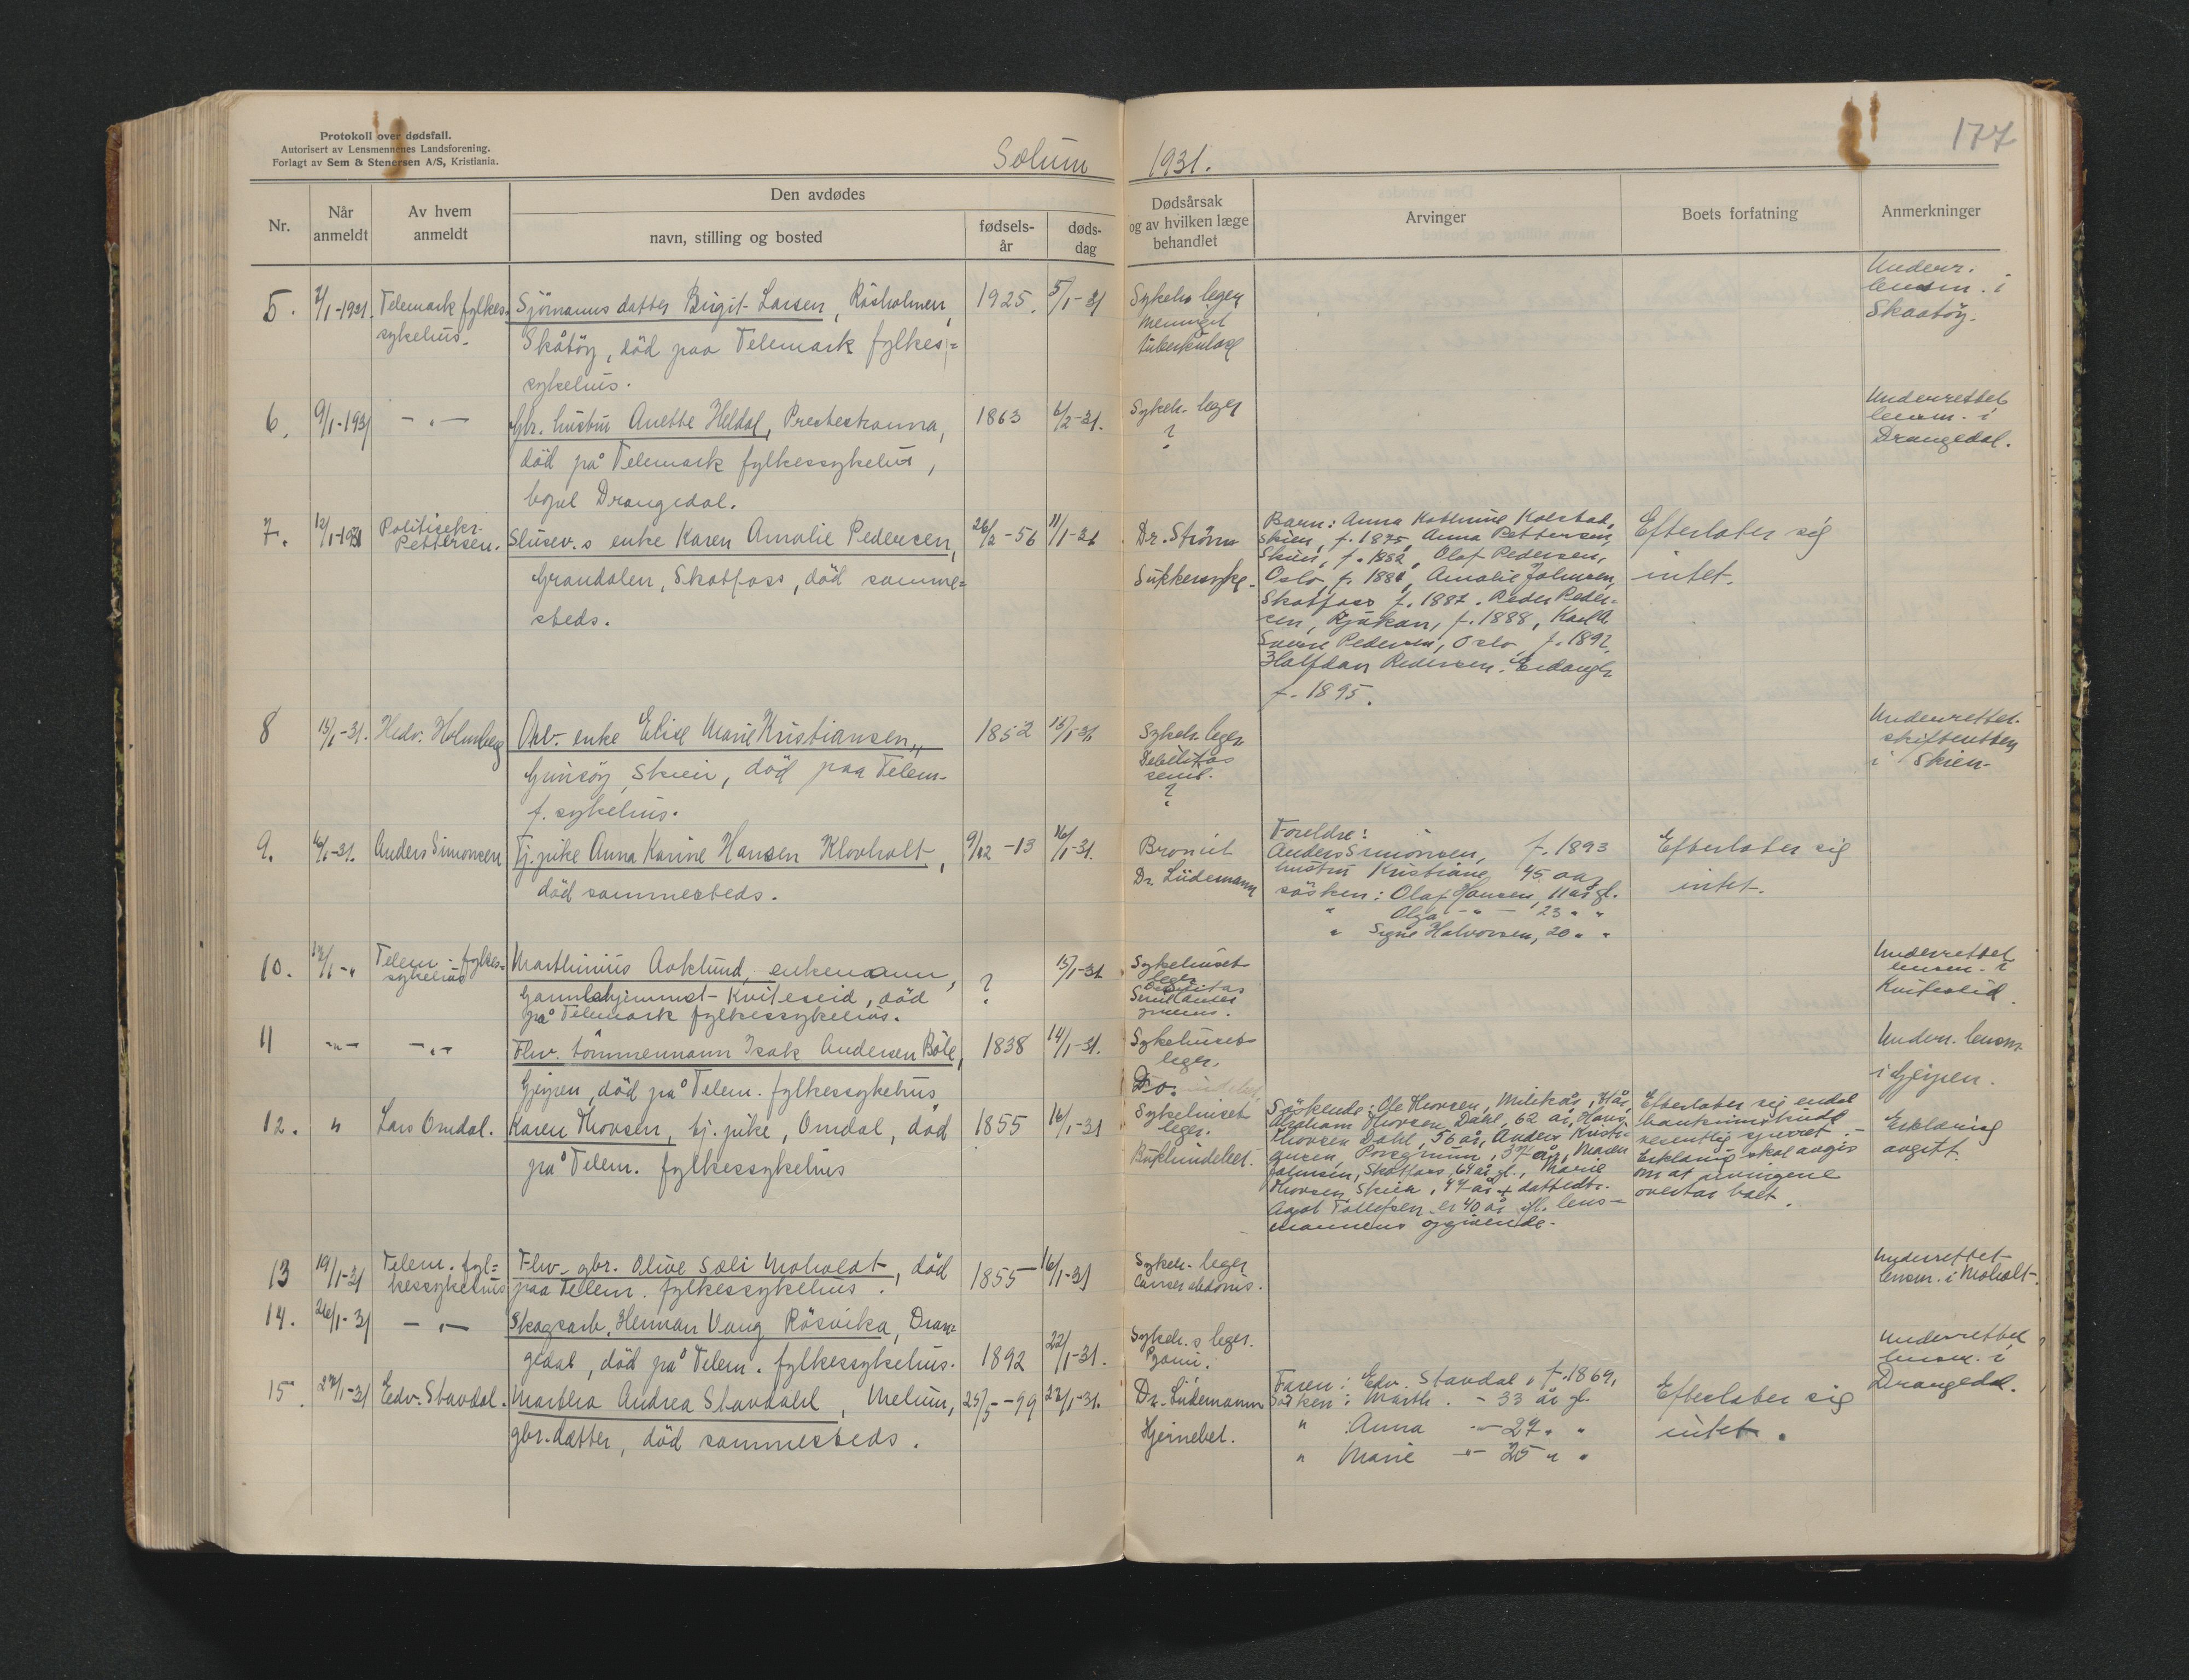 Protokoll over dødsfall.
Autorisert av Lensmennenes Landsforening.
Forlagt av Sem & Stenersen A/S, Kristiania.
Solum 1931.
177
Nr.
Når anmeldt
Av hvem anmeldt
Den avdødes
navn, stilling og bosted
fødselsår
dødsdag
Dødsårsak og av hvilken læge behandlet
Arvinger
Boets forfatning
Anmerkninger
5. 7/1-1931. Telemark fylkes- Sjömanns datter Birgit Larsen, Råsholmen, 1925. 5/1-31 Sykeh. leger
sykehus. Skåtöy, död paa Telemark fylkes= Meningit
sykehus. tuberkulose
Underr.
lensm. i
Skaatöy.
6. 9/1-1931 -"- Gbr. hustru Anette Heldal, Prestestranna, 1863 6/2-31. Sykeh. leger
död på Telemark fylkessykehus, ?
bopel Drangedal.
Underrettet
lensm. i
Drangedal.
7. 12/1-1931 Politisekr. Slusev.s enke Karen Amalie Pedersen, 26/2-56 11/1-31 Dr. Ström
Pettersen. Grandalen, Skotfoss, död samme= Sukkersyke.
steds.
Barn: Anna Kathrine Kolstad,
Skien, f. 1875, Anna Pettersen,
Skien, f. 1882, Olaf Pedersen,
Oslo, f. 1881, Amalie Johnsen,
Skotfoss f. 1887. Peder Peder=
sen, Rjukan, f. 1888, Karl A.
Sverre Pedersen, Oslo, f. 1892,
Halfdan Pedersen. Eidanger
f. 1895.
Efterlater sig
intet.
8 15/1-31. Hedv. Holmberg Arb. enke Elise Marie Kristiansen, 1852 15/1-31 Sykeh. leger
Gimsöy, Skien, död paa Telem- Debilitas
f. sykehus. senil.
?
Underrettet.
skifteretten
i Skien-
9. 16/1-31. Anders Simonsen Tj. pike Anna Karine Hansen Klovholt, 9/12-13 16/1-31. Bronkit
död sammesteds. Dr. Lüdemann
Foreldre:
Anders Simonsen, f. 1893
hustru Kristiane 45 aar
sösken: Olaf Hansen, 11 år gl.
" Olga -"- 23 " "
" Signe Halvorsen, 20 " "
Efterlater sig
intet.
10. 17/1-" Telem. fylkes= Marthinius Aaklund, enkemann, ? 15/1-31 Sykehuset
sykehus Gamlehjemmet Kviteseid, död leger
på Telemark fylkessykehus. Debilitas
Underrettet
lensm. i
Kviteseid.
11 -"- -"- Fhv. tömmermann Isak Andersen Böle, 1838 14/1-31. Sykehusets
Gjerpen, död på Telem. fylkessykehus leger.
Do.
Underr. lensm.
i Gjerpen.
12. " Lars Omdal. Karen Thorsen, tj. pike, Omdal, död 1855 16/1-31 Sykehuset
på Telem. fylkessykehus leger.
Bukhindebet.
Söskende: Ole Thorsen,
Abraham Thorsen Dahl, 62 år, Hans
Thorsen Dahl, 56 år, Anders Kristi=
ansen, Porsgrunn, 37 år, Maren
Johnsen, Skotfoss, 64 år gl., Marie
Thorsen, Skien, 44 år + datterdtr.
Tollefsen er 40 år ifl. lens-
mannens opgivende-
Efterlater sig endel
bankinnskudd
vesentlig sparret.-
Erklæring skal avgis
om at arvingene
overtar boet.
Erklæring
avgitt.
13 19/1-31 Telem. fyl= Fhv. gbr. Olive Soli Moholdt, död 1855 16/1-31 Sykeh. leger
kessykehus paa Telem. fylkessykehus. Cancer abdomis.
Underrettet
lensm. i Moholt-
14. 26/1-31 -"- Skogsarb. Herman Vang Rösvika, Dran=
gedal, död på Telem. fylkessykehus. 1892 22/1-31. Sykeh.s leger.
Underrettet
lensm. i
Drangedal.
15. 27/1-31 Edv. Stavdal. Martha Andrea Stavdahl, Melum, 25/5-99 22/1-31. Dr. Lüdemann
gbr. datter, död sammesteds. Hjernebet.
Faren: Edv. Stavdal, f. 1869,
Sösken: Marth. - 33 år gl.
" Anna -"- 27 " "
" Marie -"- 25 " "
Efterlater sig
intet.